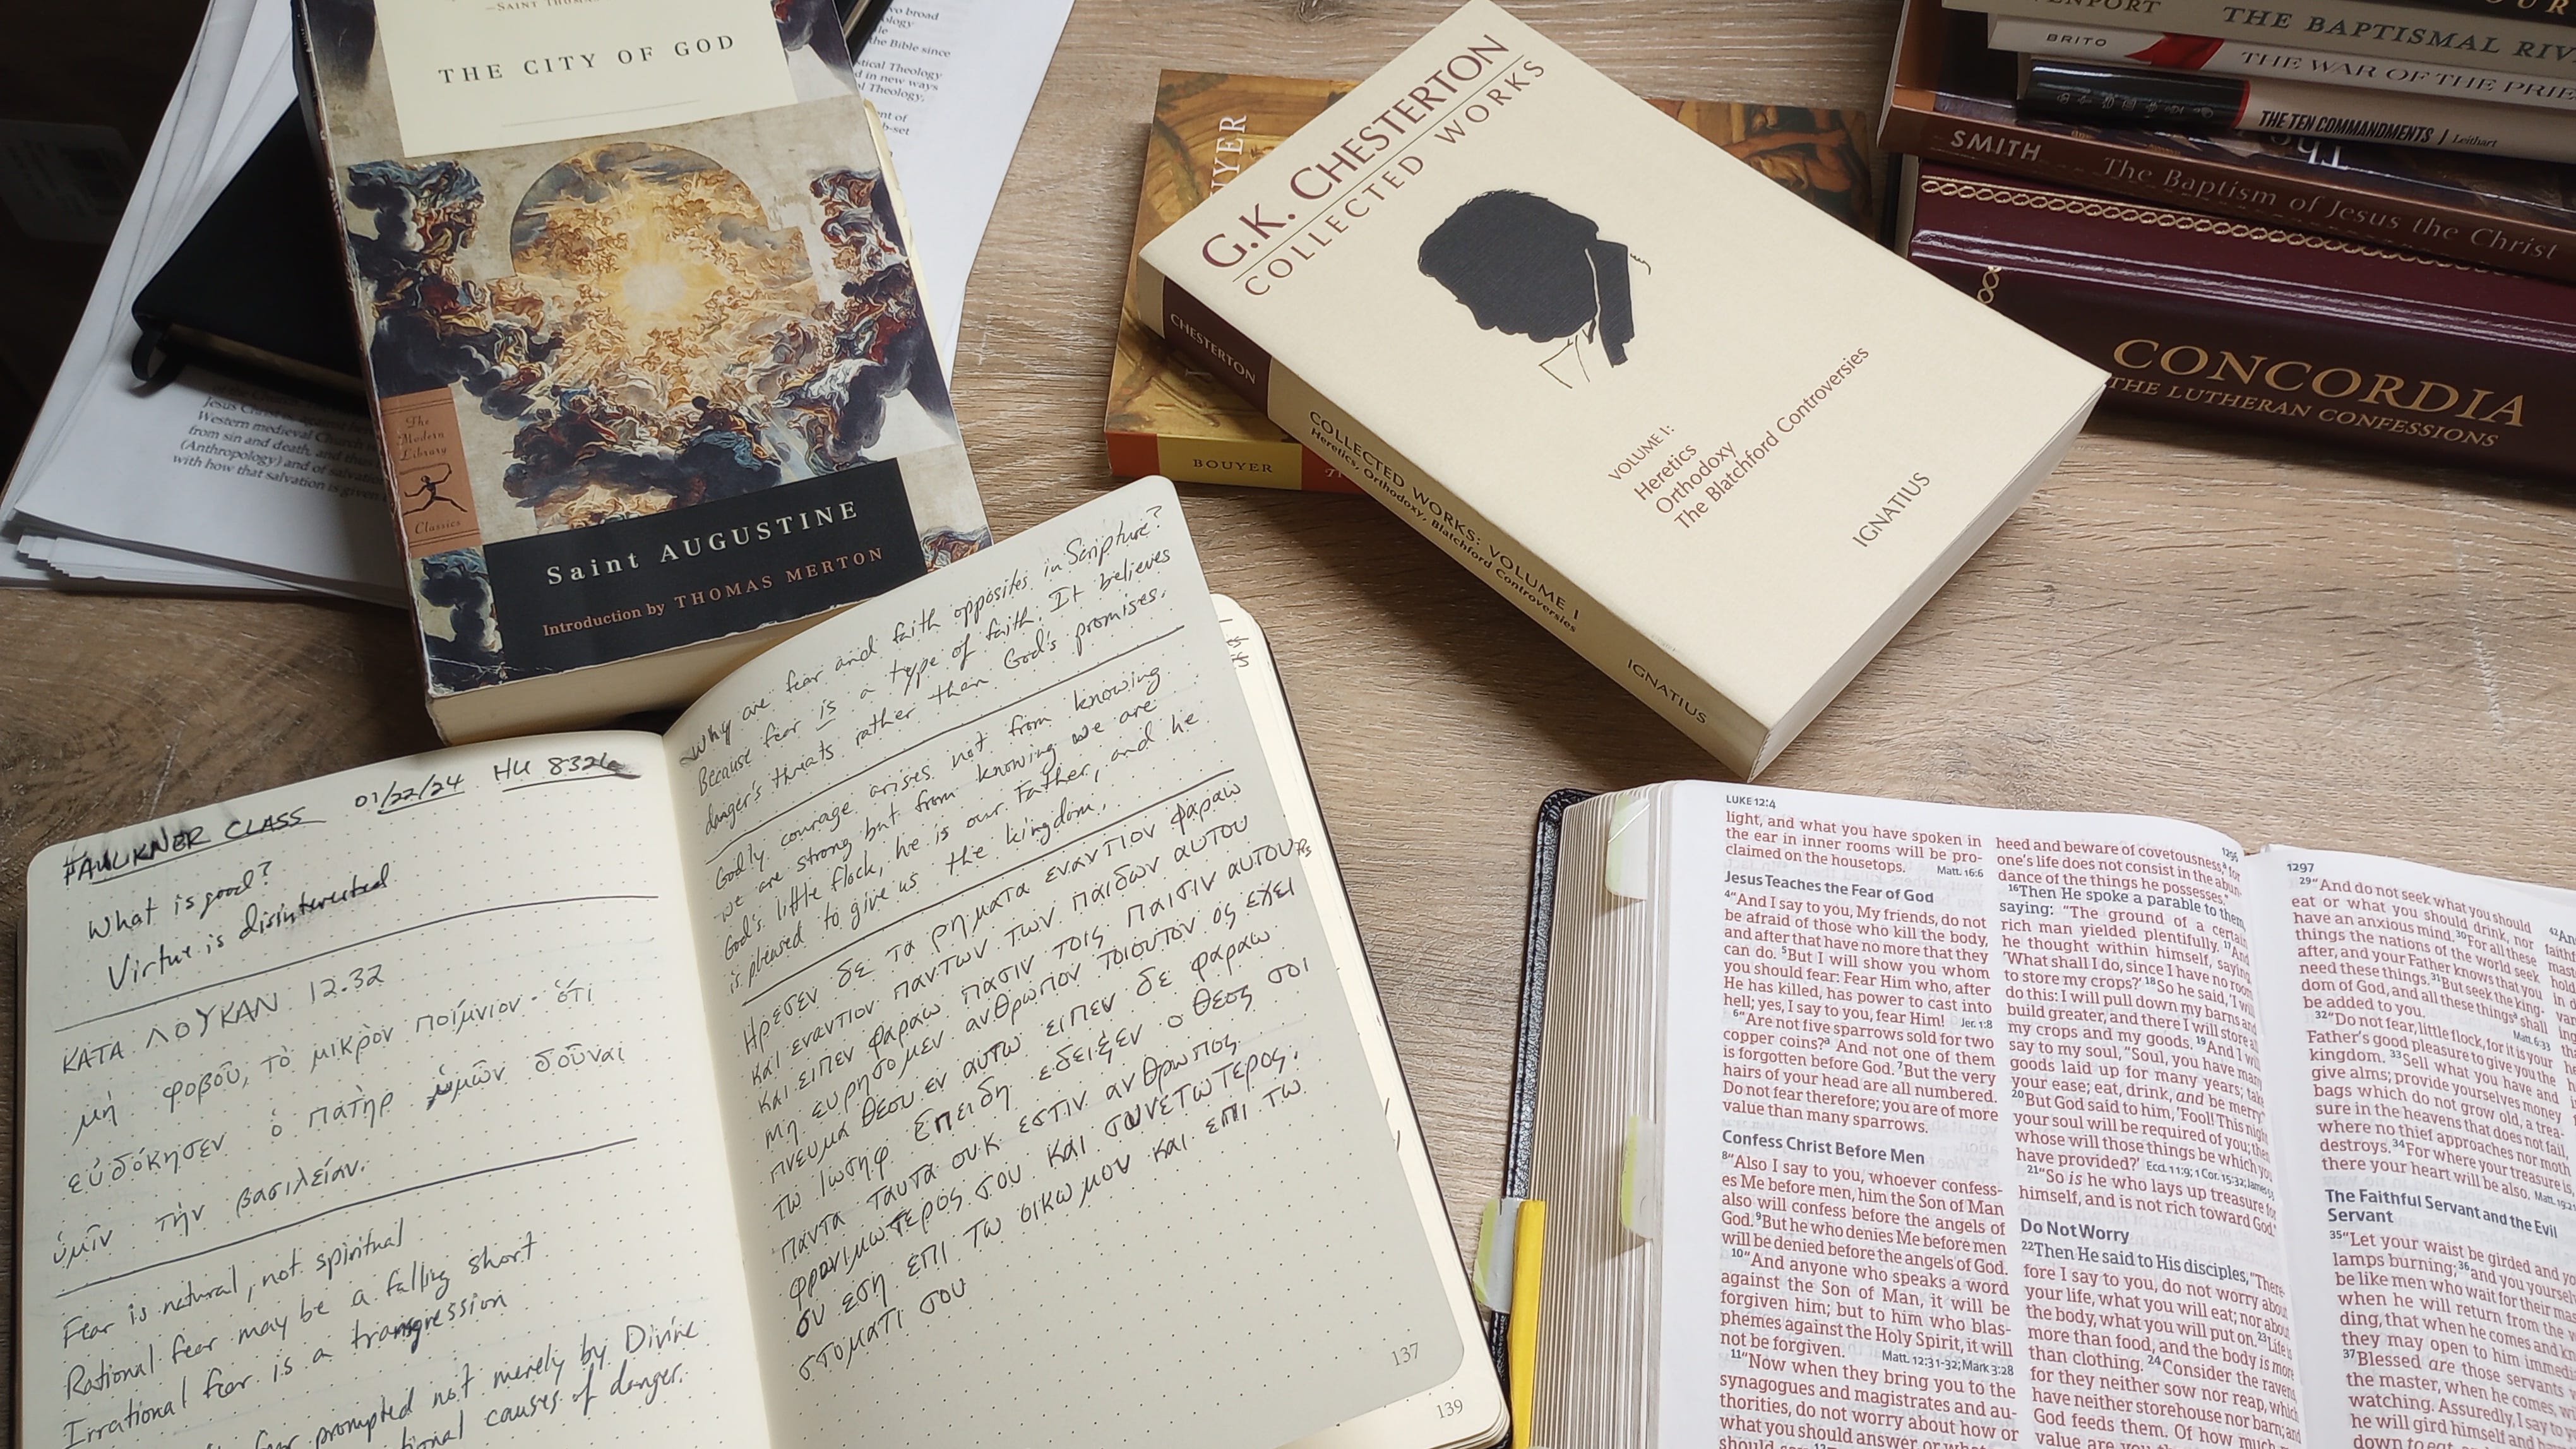 THE CITY OF GOD
The
Modern
Library
Classics
Saint AUGUSTINE
Introduction by THOMAS MERTON
two broad
the Bible since
Theology
in new ways
Theology,
Western medieval Church
from sin and death, and thus
(Anthropology) and of salvation
with how that salvation is given
BOUYER
G.K. CHESTERTON
COLLECTED WORKS
VOLUME I:
Heretics
Orthodoxy
The Blatchford Controversies
IGNATIUS
CHESTERTON
COLLECTED WORKS: VOLUME I
Heretics, Orthodoxy, Blatchford Controversies
IGNATIUS
THE BAPTISMAL
BRITO THE WAR OF THE
THE TEN COMMANDMENTS | Leithart
SMITH The Baptism of Jesus the Christ
CONCORDIA
THE LUTHERAN CONFESSIONS
FAULKNER CLASS 01/22/24 HU 8326
What is good?
Virtue is disinterested
ΚΑΤΑ ΛΟΥΚΑΝ 12.32
μὴ φοβοῦ, τὸ μικρὸν ποίμνιον· ὅτι
εὐδόκησεν ὁ πατὴρ ὑμῶν δοῦναι
ὑμῖν τὴν βασιλείαν.
Fear is natural, not spiritual
Rational fear may be a falling short
Irrational fear is a transgression
fear prompted not merely by Divine
causes of danger.
Why are fear and faith opposites in Scripture?
Because fear is a type of faith. It believes
danger's threats rather than God's promises.
Godly courage arises not from knowing
we are strong but from knowing we are
God's little flock, he is our Father, and he
is pleased to give us the kingdom.
Ηρεσεν δε τα ρηματα εναντιον φαραω
και εναντιον παντων των παιδων αυτου
και ειπεν φαραω πασιν τοις παισιν αυτου
μη ευρησομεν ανθρωπον τοιουτον ος εχει
πνευμα θεου εν αυτω ειπεν δε φαραω
τω Ιωσηφ Επειδη εδειξεν ο θεος σοι
παντα ταυτα ουκ εστιν ανθρωπος
φρονιμωτερος σου και συνετωτερος.
συ εση επι τω οικω μου και επι τω
στοματι σου
137
139
LUKE 12:4
light, and what you have spoken in
the ear in inner rooms will be pro-
claimed on the housetops. Matt. 16:6
Jesus Teaches the Fear of God
4“And I say to you, My friends, do not
be afraid of those who kill the body,
and after that have no more that they
can do. 5But I will show you whom
you should fear: Fear Him who, after
He has killed, has power to cast into
hell; yes, I say to you, fear Him! Jer. 1:8
6“Are not five sparrows sold for two
copper coins?a And not one of them
is forgotten before God. 7But the very
hairs of your head are all numbered.
Do not fear therefore; you are of more
value than many sparrows.
Confess Christ Before Men
8“Also I say to you, whoever confess-
es Me before men, him the Son of Man
also will confess before the angels of
God. 9But he who denies Me before men
will be denied before the angels of God.
10“And anyone who speaks a word
against the Son of Man, it will be
forgiven him; but to him who blas-
phemes against the Holy Spirit, it will
not be forgiven. Matt. 12:31-32; Mark 3:28
11“Now when they bring you to the
synagogues and magistrates and au-
thorities, do not worry about how or
what you should answer or
1296
heed and beware of covetousness,a for
one's life does not consist in the abun-
dance of the things he possesses.”
16Then He spoke a parable to them,
saying: “The ground of a certain
rich man yielded plentifully. 17And
he thought within himself, saying,
‘What shall I do, since I have no room
to store my crops?’ 18So he said, ‘I will
do this: I will pull down my barns and
build greater, and there I will store all
my crops and my goods. 19And I will
say to my soul, “Soul, you have many
goods laid up for many years; take
your ease; eat, drink, and be merry.”’
20But God said to him, ‘Fool! This night
your soul will be required of you; then
whose will those things be which you
have provided?’ Eccl. 11:9; 1 Cor. 15:32; James
21“So is he who lays up treasure for
himself, and is not rich toward God.”
Do Not Worry
22Then He said to His disciples, “There-
fore I say to you, do not worry about
your life, what you will eat; nor about
the body, what you will put on. 23Life is
more than food, and the body is more
than clothing. 24Consider the ravens,
for they neither sow nor reap, which
have neither storehouse nor barn; and
God feeds them. Of how much
value are you
1297
29“And do not seek what you should
eat or what you should drink, nor
have an anxious mind. 30For all these
things the nations of the world seek
after, and your Father knows that you
need these things. 31But seek the king-
dom of God, and all these things shall
be added to you. Matt. 6:33
32“Do not fear, little flock, for it is your
Father's good pleasure to give you the
kingdom. 33Sell what you have and
give alms; provide yourselves money
bags which do not grow old, a trea-
sure in the heavens that does not fail,
where no thief approaches nor moth
destroys. 34For where your treasure is,
there your heart will be also. Matt. 19:21
The Faithful Servant and the Evil
Servant
35“Let your waist be girded and
lamps burning; 36and you
be like men who wait for their
when he will return from the
ding, that when he comes and
they may open to him
37Blessed are those servants
the master, when he comes,
watching. Assuredly, I say to
he will gird himself and